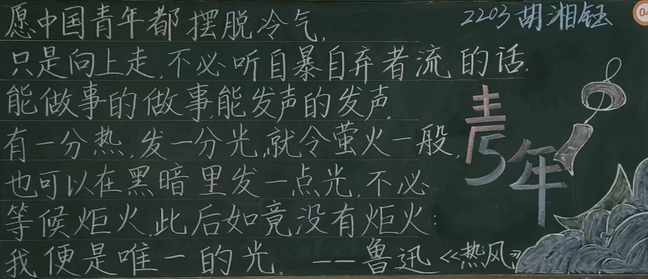 愿中国青年都摆脱冷气,
2203胡湘钰
只是向上走,不必听自暴自弃者流的话.
能做事的做事,能发声的发声.
有一分热,发一分光,就令萤火一般,
也可以在黑暗里发一点光,不必
等候炬火.此后如竟没有炬火:
我便是唯一的光. ——鲁迅《热风》
青年
04